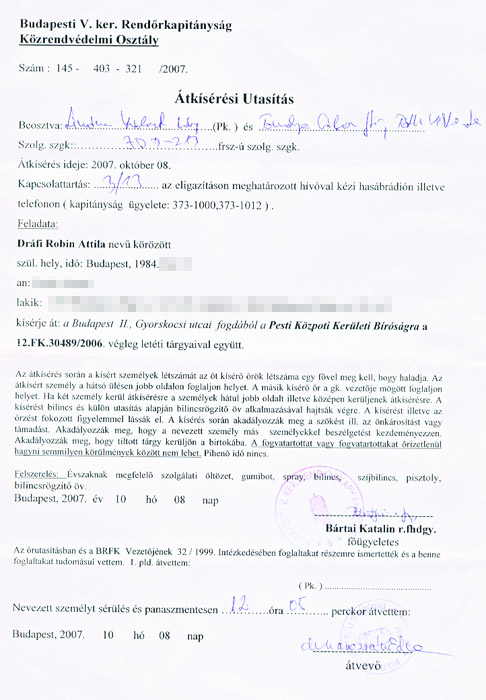 Budapesti V. ker. Rendőrkapitányság
Közrendvédelmi Osztály
Szám : 145 - 403 - 321 /2007.
Átkísérési Utasítás
Beosztva: (Pk. ) és
Szolg. szgk:: frsz-ú szolg. szgk.
Átkísérés ideje: 2007. október 08.
Kapcsolattartás: 3/13 az eligazításon meghatározott hívóval kézi hasábrádión illetve
telefonon ( kapitányság ügyelete: 373-1000,373-1012 ) .
Feladata:
Dráfi Robin Attila nevű körözött
szül. hely, idő: Budapest, 1984.
an:
lakik:
kísérje át: a Budapest II., Gyorskocsi utcai fogdából a PestiKözpoti Kerületi Bíróságra a
12.FK.30489/2006. végleg letéti tárgyaival együtt.
Az átkísérés során a kísért személyek létszámát az őt kísérő őrök létszáma egy fővel meg kell, hogy haladja. Az
átkísért személy a hátsó ülésen jobb oldalon foglaljon helyet. A másik kísérő őr a gk. vezetője mögött foglaljon
helyet. Ha két személy kerül átkísérésre a személyek hátul jobb oldalt illetve középen kerüljenek átkísérésre. A
kísérést bilincs és külön utasítás alapján bilincsrögzítő öv alkalmazásával hajtsák végre. A kísérést illetve az
őrzést fokozott figyelemmel lássák el. A kísérés során akadályozzák meg a szökést ill. az önkárosítást vagy
támadást. Akadályozzák meg, hogy a nevezett személy más személyekkel beszélgetést kezdeményezzen.
Akadályozzák meg, hogy tiltott tárgy kerüljön a birtokába. A fogvatartottat vagy fogvatartottakat őrizetlenül
hagyni semmilyen körülmények között nem lehet. Pihenő idő nincs.
Felszerelés: Évszaknak megfelelő szolgálati öltözet, gumibot, spray, bilincs, szíjbilincs, pisztoly,
bilincsrögzítő öv.
Budapest, 2007. év 10 hó 08 nap
Bártai Katalin r.fhdgy.
főügyeletes
Az őrutasításban és a BRFK Vezetőjének 32 / 1999. Intézkedésében foglaltakat részemre ismertették és a benne
foglaltakat tudomásul vettem. 1. pld. átvettem:
( Pk. )
Nevezett személyt sérülés és panaszmentesen 12 óra 05 perckor átvettem:
Budapest, 2007. 10 hó 08 nap
átvevő